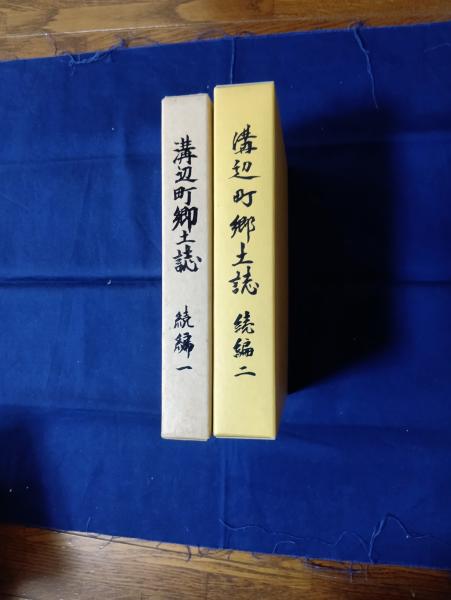 溝辺町郷土誌 続編一
溝辺町郷土誌 続編二